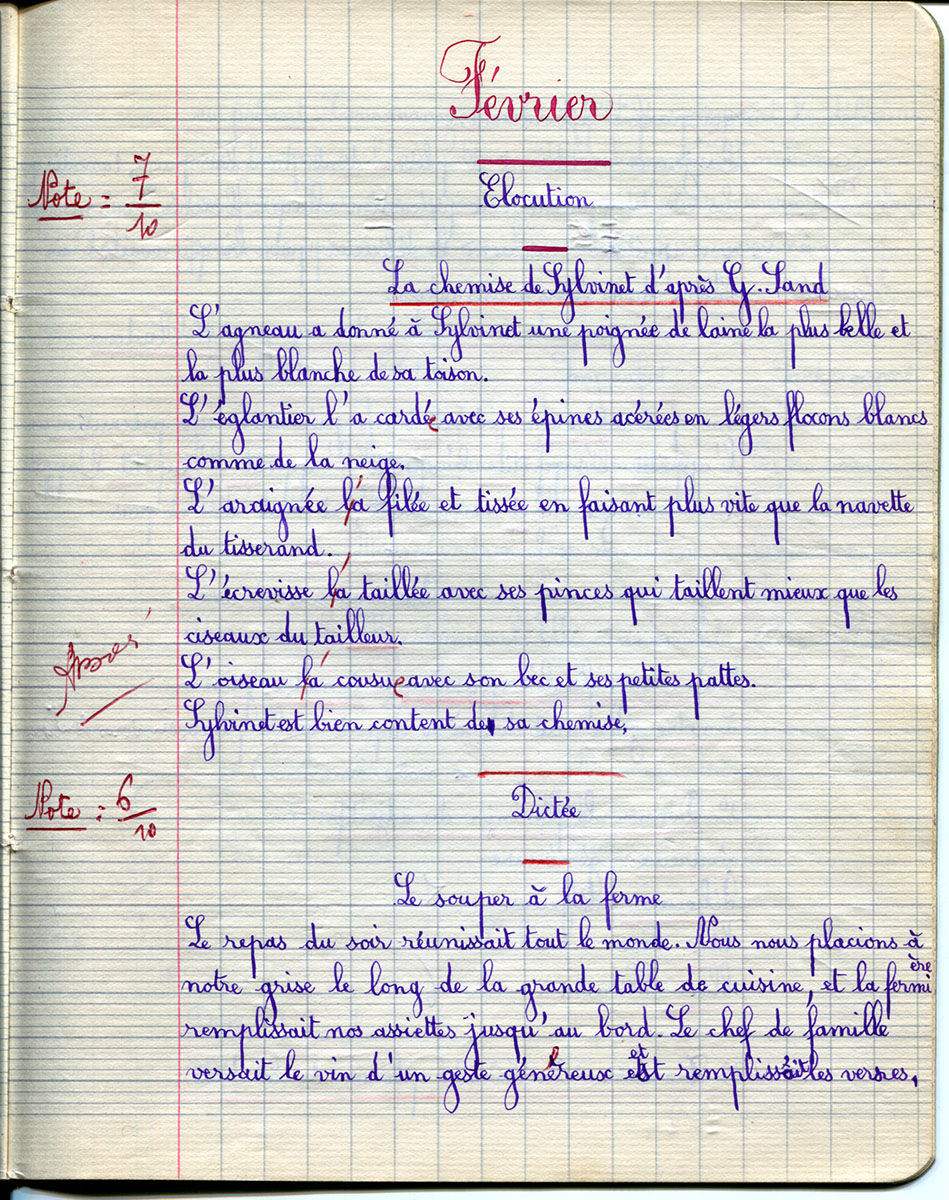 Février
Note = 7/10
Elocution
La chemise de Sylvinet d'après G. Sand
L'agneau a donné à Sylvinet une poignée de laine la plus belle et
la plus blanche de sa toison.
L'églantier l'a cardée avec ses épines acérées en légers flocons blancs
comme de la neige.
L'araignée l'a filée et tissée en faisant plus vite que la navette
du tisserand.
L'écrevisse l'a taillée avec ses pinces qui taillent mieux que les
ciseaux du tailleur.
L'oiseau l'a cousue avec son bec et ses petites pattes.
Sylvinet est bien content de sa chemise.
Note : 6/10
Dictée
Le souper à la ferme
Le repas du soir réunissait tout le monde. Nous nous placions à
notre grise le long de la grande table de cuisine, et la fermière
remplissait nos assiettes jusqu'au bord. Le chef de famille
versait le vin d'un geste généreux et remplissait les verres,